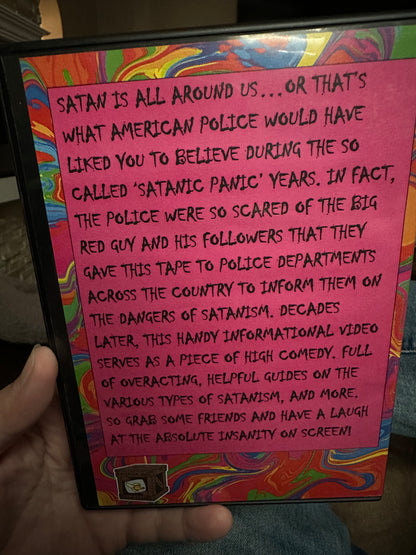 SATAN IS ALL AROUND US...OR THAT'S
WHAT AMERICAN POLICE WOULD HAVE
LIKED YOU TO BELIEVE DURING THE SO
CALLED 'SATANIC PANIC' YEARS. IN FACT,
THE POLICE WERE SO SCARED OF THE BIG
RED GUY AND HIS FOLLOWERS THAT THEY
GAVE THIS TAPE TO POLICE DEPARTMENTS
ACROSS THE COUNTRY TO INFORM THEM ON
THE DANGERS OF SATANISM. DECADES
LATER, THIS HANDY INFORMATIONAL VIDEO
SERVES AS A PIECE OF HIGH COMEDY. FULL
OF OVERACTING, HELPFUL GUIDES ON THE
VARIOUS TYPES OF SATANISM, AND MORE.
SO GRAB SOME FRIENDS AND HAVE A LAUGH
AT THE ABSOLUTE INSANITY ON SCREEN!